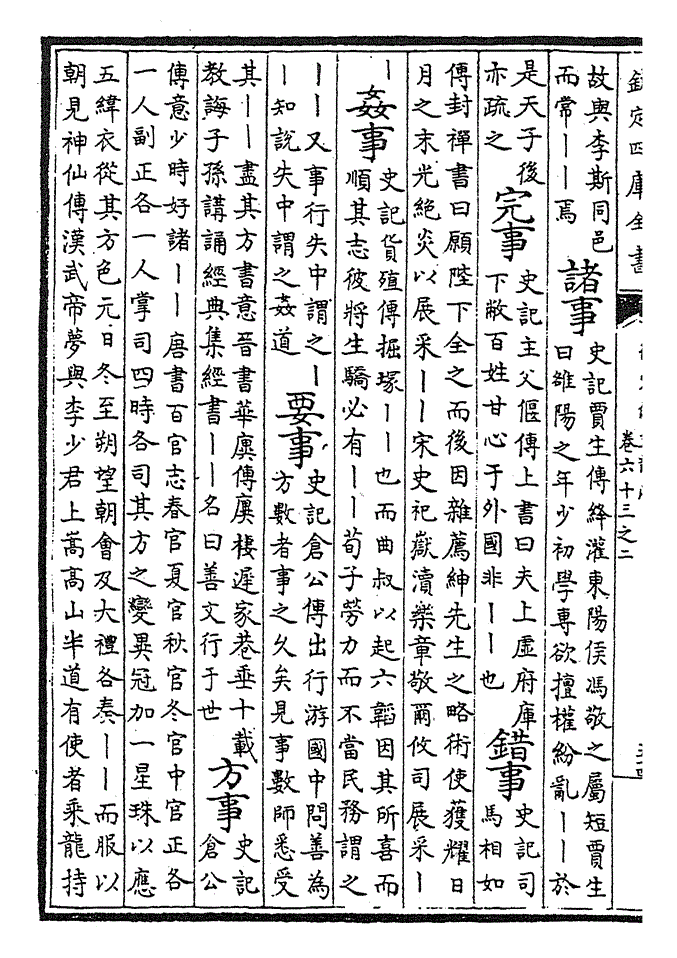 欽定四庫全書
卷六十三之二
故與李斯同邑
而常——焉
諸事
史記賈生傳絳灌東陽侯馮敬之屬短賈生
曰雒陽之年少初學專欲擅權紛亂——於
是天子後
亦疏之
完事
史記主父偃傳上書曰夫上虛府庫
下敝百姓甘心于外國非——也
錯事
史記司
馬相如
傳封禪書曰願陛下全之而後因雜薦紳先生之略術使獲耀日
月之末光絶炎以展采——宋史祀嶽瀆樂章敬爾攸司展采—
—
姦事
史記貨殖傳掘塚——也而曲叔以起六韜因其所喜而
順其志彼將生驕必有——荀子勞力而不當民務謂之
——又事行失中謂之—
—知說失中謂之姦道
要事
史記倉公傳出行游國中問善為
方數者事之久矣見事數師悉受
其——盡其方書意晉書華廙傳廙棲遲家巷垂十載
教誨子孫講誦經典集經書——名曰善文行于世
方事
史記
倉公
傳意少時好諸——唐書百官志春官夏官秋官冬官中官正各
一人副正各一人掌司四時各司其方之變異冠加一星珠以應
五緯衣從其方色元日冬至朔望朝會及大禮各奏——而服以
朝見神仙傳漢武帝夢與李少君上嵩高山半道有使者乘龍持